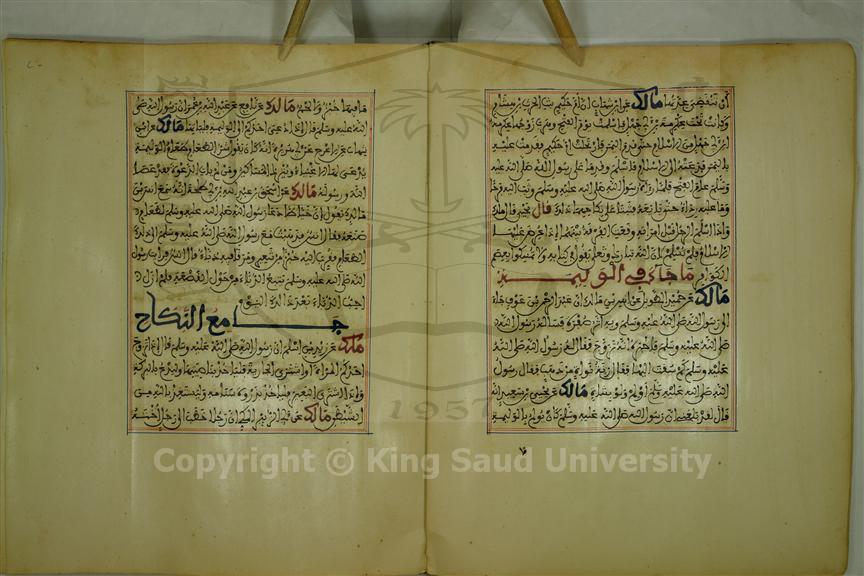 أن تنقضي عدتها مالك عن ابن شهاب أن أم حكيم بنت الحرث بن هشام
وكانت تحت عكرمة بن أبي جهل فأسلمت يوم الفتح وهرب زوجها عكرمة بن
أبي جهل من الإسلام حتى قدم اليمن فارتحلت أم حكيم حتى قدمت عليه
باليمن فدعته إلى الإسلام فأسلم وقدم على رسول الله صلى الله عليه
وسلم عام الفتح فلما رآه رسول الله صلى الله عليه وسلم وثب إليه فرحا
وما عليه رداء حتى بايعه فثبتا على نكاحهما ذلك قال يحيى قال مالك
وإذا أسلم الرجل قبل امرأته وقعت الفرقة بينهما إذا عرض عليها
الإسلام فلم تسلم لأن الله تبارك وتعالى يقول في كتابه ولا تمسكوا بعصم
الكوافر ما جاء في الوليمة
مالك عن حميد الطويل عن أنس بن مالك أن عبد الرحمن بن عوف جاء
إلى رسول الله صلى الله عليه وسلم وبه أثر صفرة فسأله رسول الله
صلى الله عليه وسلم فأخبره أنه تزوج فقال له رسول الله صلى الله
عليه وسلم كم سقت إليها فقال زنة نواة من ذهب فقال رسول
الله صلى الله عليه وسلم أولم ولو بشاة مالك عن يحيى بن سعيد أنه
قال لقد بلغني أن رسول الله صلى الله عليه وسلم كان يولم بالوليمة
ما فيها خبز ولا لحم مالك عن نافع عن عبد الله بن عمر أن رسول الله صلى
الله عليه وسلم قال إذا دعي أحدكم إلى الوليمة فليأتها مالك عن ابن
شهاب عن الأعرج عن أبي هريرة أنه كان يقول شر الطعام طعام الوليمة
يدعى لها الأغنياء ويترك المساكين ومن لم يأت الدعوة فقد عصا
الله ورسوله مالك عن إسحق بن عبد الله بن أبي طلحة أنه سمع أنس بن
مالك يقول إن خياطا دعا رسول الله صلى الله عليه وسلم لطعام
صنعه فقال أنس فذهبت مع رسول الله صلى الله عليه وسلم إلى ذلك
الطعام فقرب إليه خبزا من شعير ومرقا فيه دباء قال أنس فرأيت رسول
الله صلى الله عليه وسلم يتتبع الدباء من حول القصعة فلم أزل
أحب الدباء بعد ذلك اليوم
جامع النكاح
ملك عن زيد بن أسلم أن رسول الله صلى الله عليه وسلم قال إذا تزوج
أحدكم المرأة أو اشترى الجارية فليأخذ بناصيتها وليدع بالبركة
وإذا اشترى البعير فليأخذ بذروة سنامه وليستعذ بالله من
الشيطان مالك عن أبي الزبير المكي أن رجلا خطب إلى رجل أخته
1957
Copyright © King Saud University